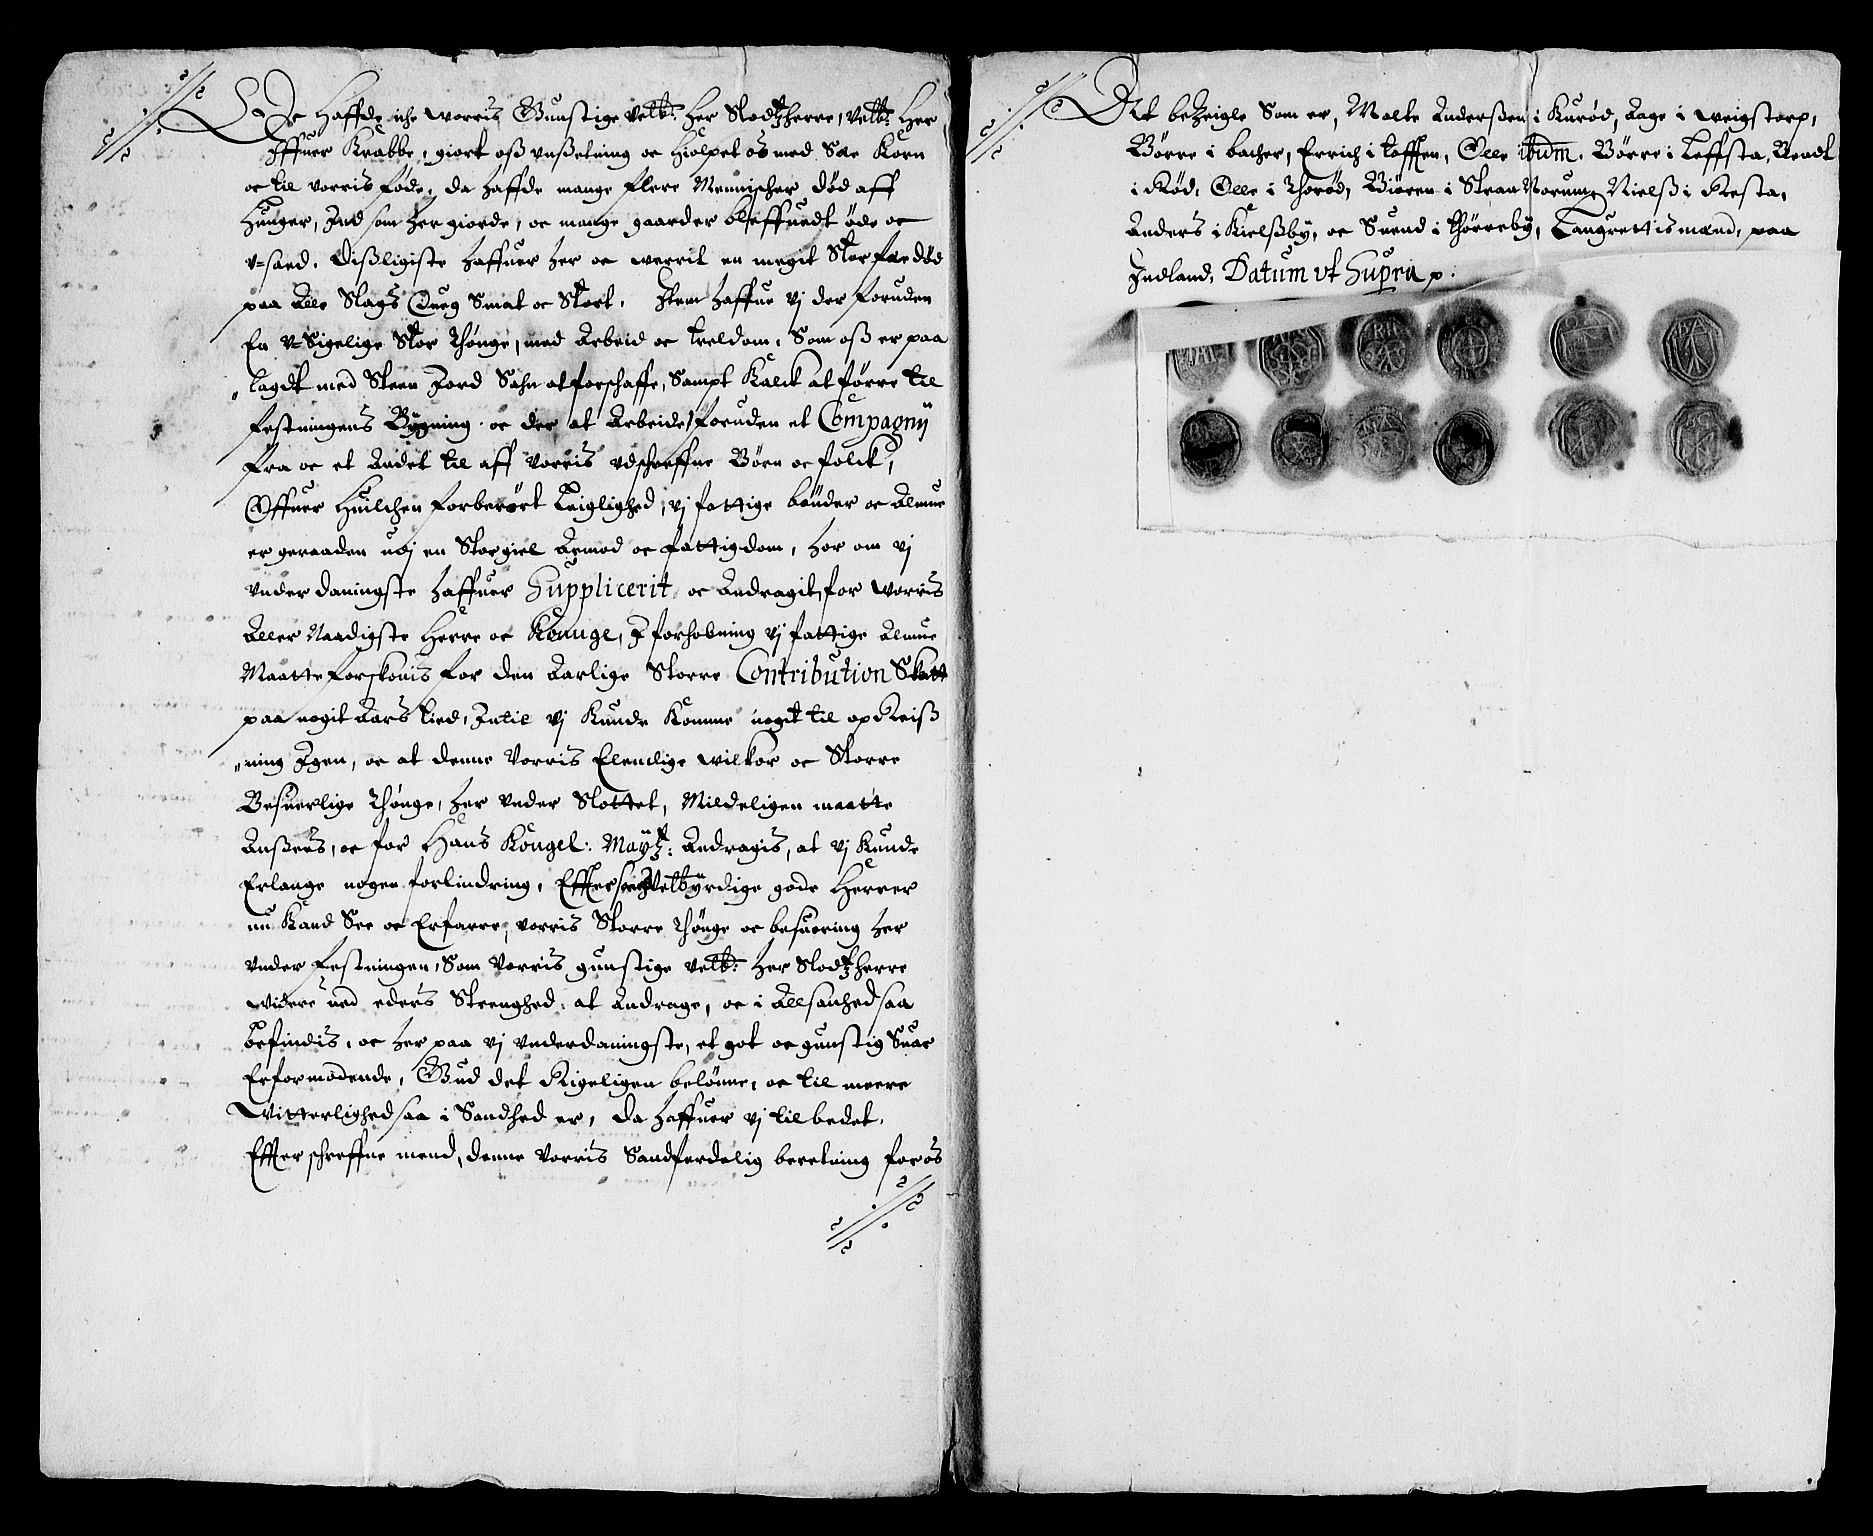 De Haffde iche worris Gunstige velb: Her Slodtzherre, velb: Her
Iffuer Krabbe, giort oß vnßetning oc hiolpet os med Sæe Korn
oc til vorris føde, da haffde mange flere Mennischer død aff
Hunger, End som her giorde, oc mange gaarder bleffuedt øde oc
v-saed. Dißligiste haffuer her oc werrit en megit Stor fæ død
paa Alle Slags Queg Smat oc Stort. Item haffue vj der foruden
En v-Sigelige Stor thønge, med Arbeid oc treldom, Som oß er paa
lagdt med Steen Jord Sahn at forschaffe, Sampt Kalck at førre til
festningens Bygning oc der at Arbeide, foruden et Compagnij
fra oc et Andet til aff vorris vdschreffne Børn oc folck,
Offuer Huilchen forberørt Leiglighed, vj fattige bønder oc Almue
er geraaden udj en Stor giel Armod oc fattigdom, hor om vj
vnderdaningste haffuer Supplicerit oc Andragit, for worris
Aller Naadigste Herre oc Konnge, I forhobning vj fattige Almue
Maatte forskonis for den Aarlige Storre Contribution Skatt
paa nogit Aars tied, Intil vj Kunde Komme noget til opReiß
ning Igen, oc at denne Vorris Elendige wilkor oc Storre
Besuerlige thønge, her vnder Slottet, Mildeligen maatte
Anßees, oc for Hans Kongel: Maytz: Andragis, at vj Kunde
Erlange nogen forlindring, Effterson Velbyrdige gode Herrer
nu Kand See oc Erfarre, vorris Storre thønge oc besuering her
vnder festningen, Som Vorris gunstige velb: Her Slodtzherre
widere ued eders Strenghed at Andrage, oc i Allsanhed saa
befindis, oc her paa vj vnderdaningste, et got oc gunstig Suar
Erformodende, Gud det Rigeligen belønne, oc til meere
Vitterlighed saa i Sandhed er, da haffuer vj til bedet
Effterschreffne mend, denne Vorris Sandferdelig beretning for os
At beZeigle Som er, Malte Anderßen i Kurød, Aage i weigstorp,
Børre i backer, Errich i tofften, Olle ibidm. Børre i Leffsta, Bendt
i Rød, Olle i Thorød, Biøren i Stran Norum, Nielß i Resta,
Anders i Kielßby, oc Suend i thørreby, Laugrettismænd, paa
Indland, Datum vt Supra p:
RH